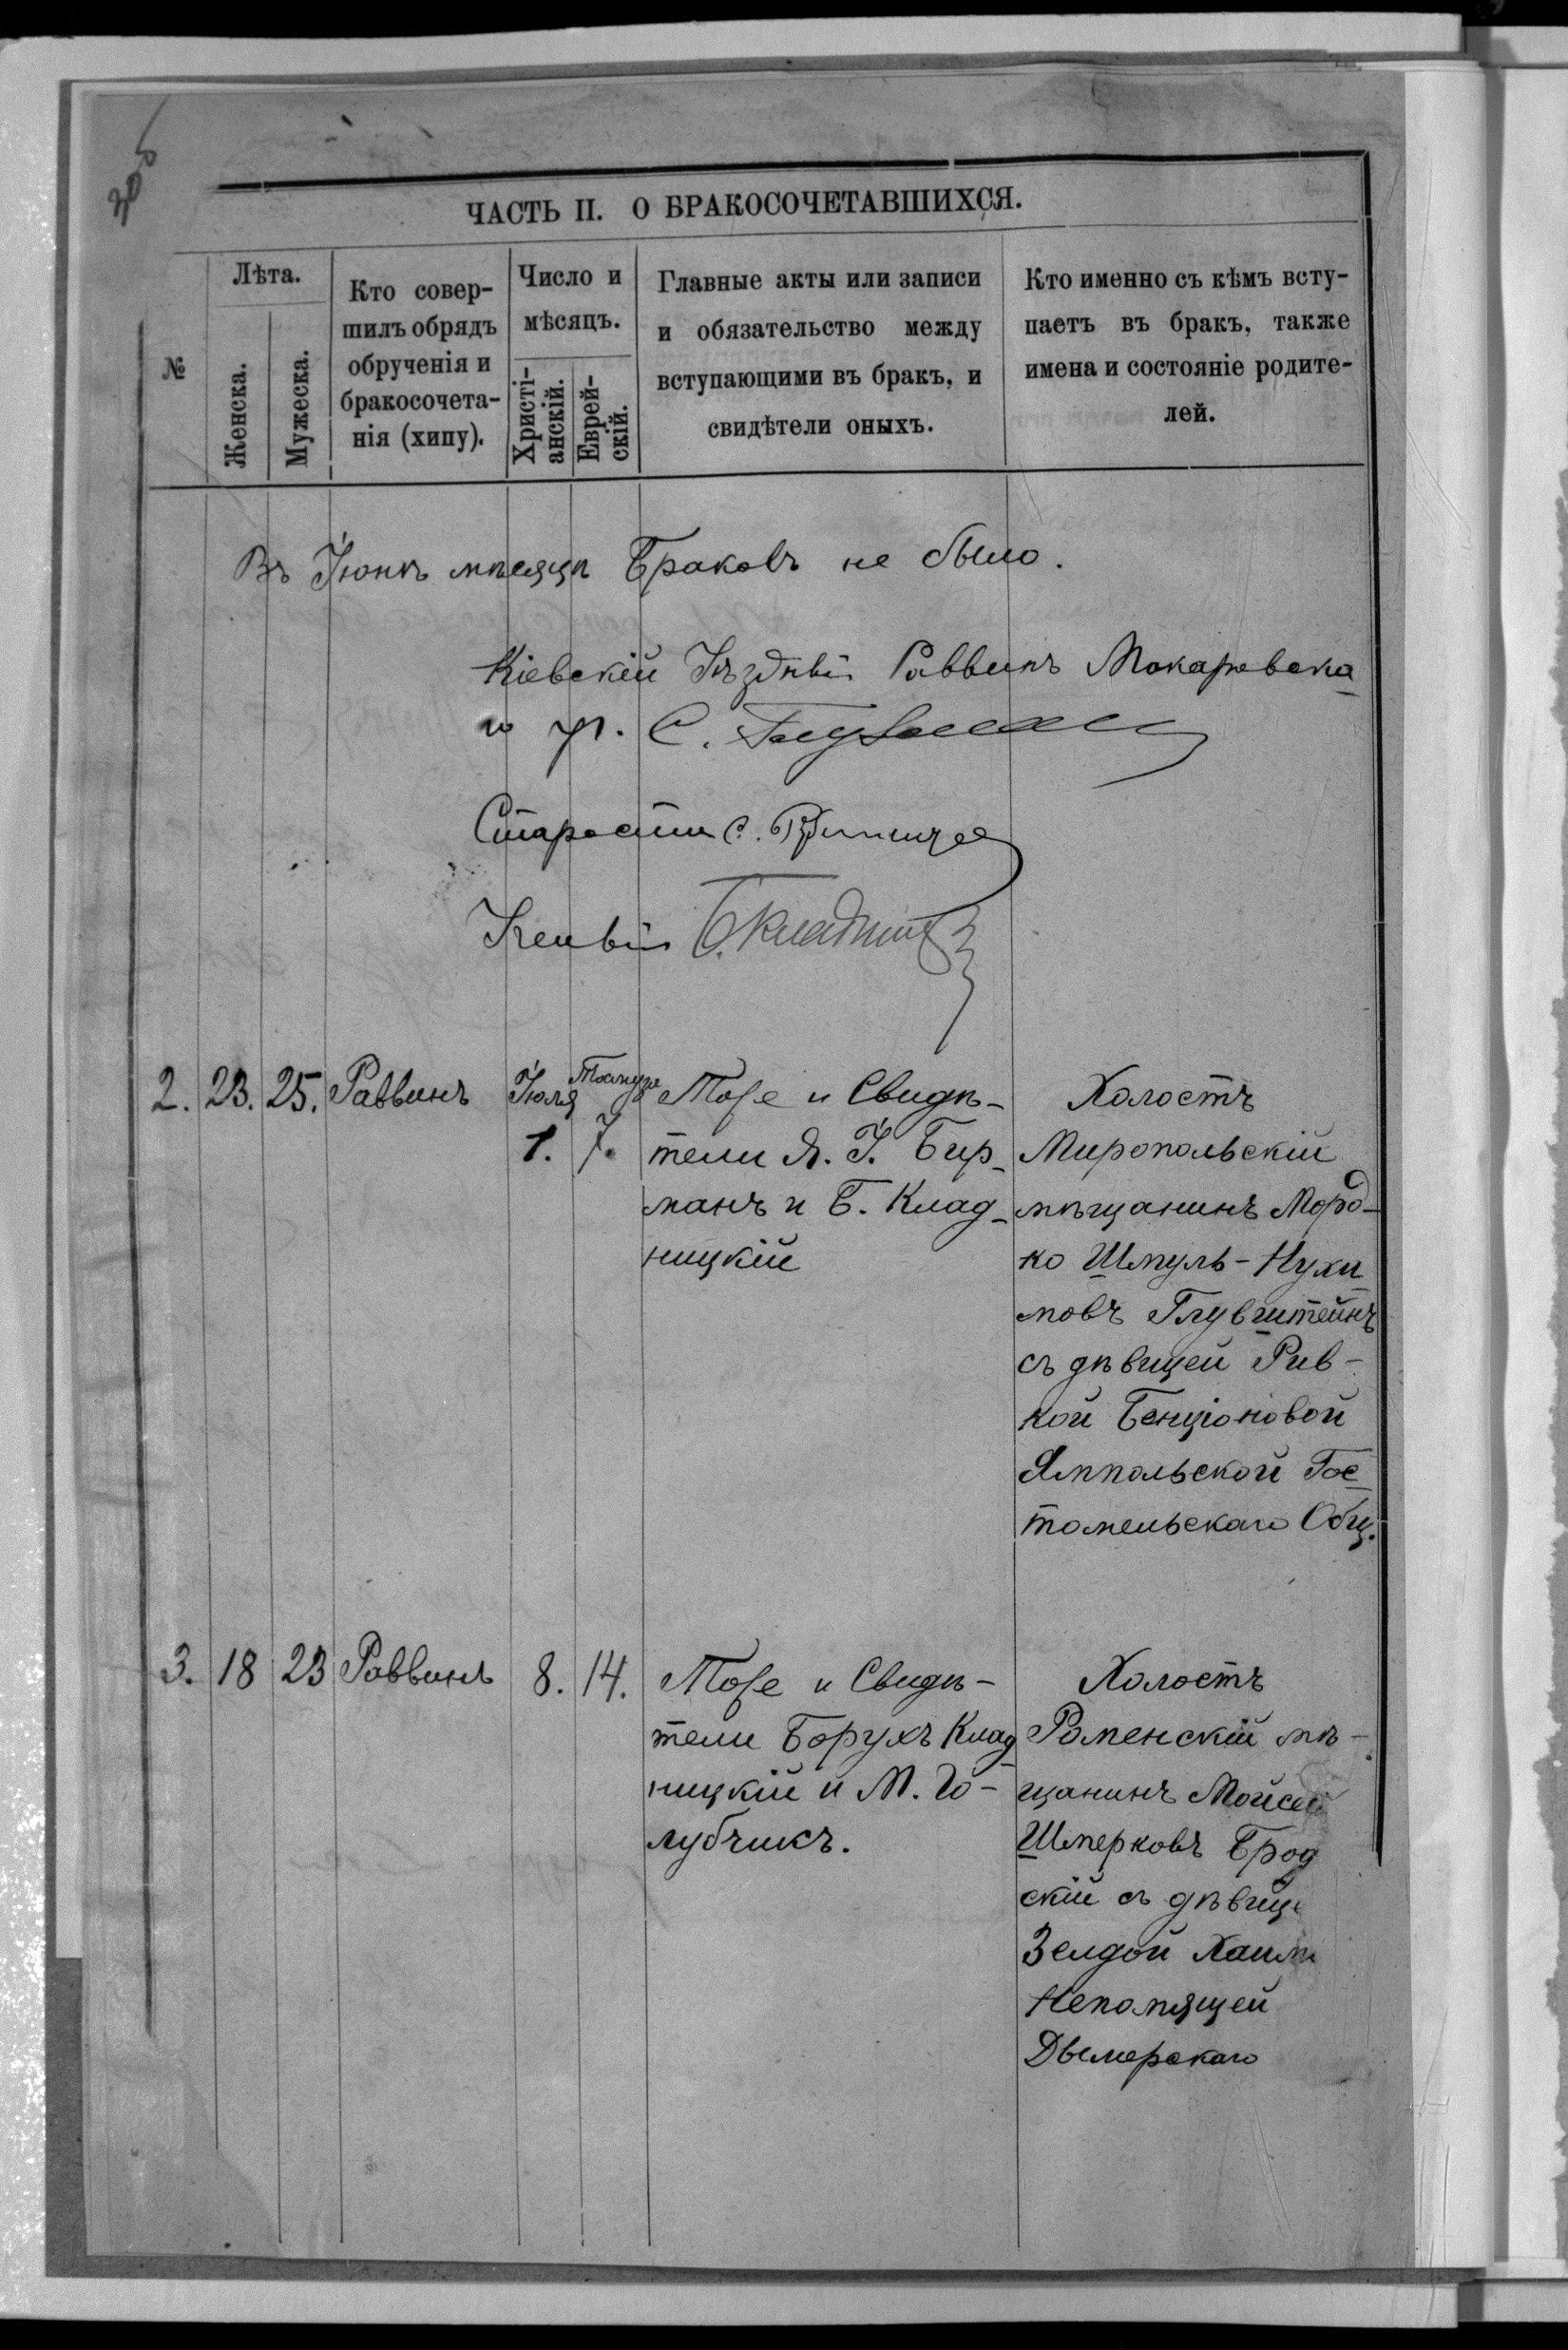 ЧАСТЬ II. О БРАКОСОЧЕТАВШИХСЯ.
№
Лѣта.
Женска.
Мужеска.
Кто совер-
шилъ обрядъ
обрученія и
бракосочета-
нія (хипу).
Число и
мѣсяцъ.
Христі-
анскій.
Еврей-
скій.
Главные акты или записи
и обязательство между
вступающими въ бракъ, и
свидѣтели оныхъ.
Кто именно съ кѣмъ всту-
паетъ въ бракъ, также
имена и состояніе родите-
лей.
Въ Іюнѣ мѣсяцѣ Браковъ не было.
Кіевскій Уѣздный Раввинъ Макаревска
го уч. С.
Староста С.
Ученый Б. Кладниц
2. 23. 25. Раввинъ Іюля 1. Тамуза 7.
Тоже и Свидѣ-
тели Я. І. Бир-
манъ и Б. Клад-
ницкій
Холостъ
Миропольскій
мѣщанинъ Морд-
ко Шмуль-Нухи
мовъ Глувштейнъ
съ дѣвицей Рив-
кой Бенціоновой
Ямпольской Гос
томельскаго Общ.
3. 18 23 Раввинъ 8. 14.
Тоже и Свидѣ-
тели Борухъ Клад
ницкій и М. Го-
лубчикъ.
Холостъ
Роменскій мѣ-
щанинъ Мойсей
Шмерковъ Брод
скій съ дѣвице
Зелдой Хаим
Непомящей
Дымерскаго